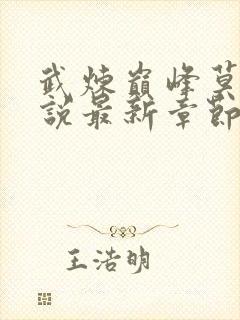 武煉巔峰莫
說最新章節
王浩明